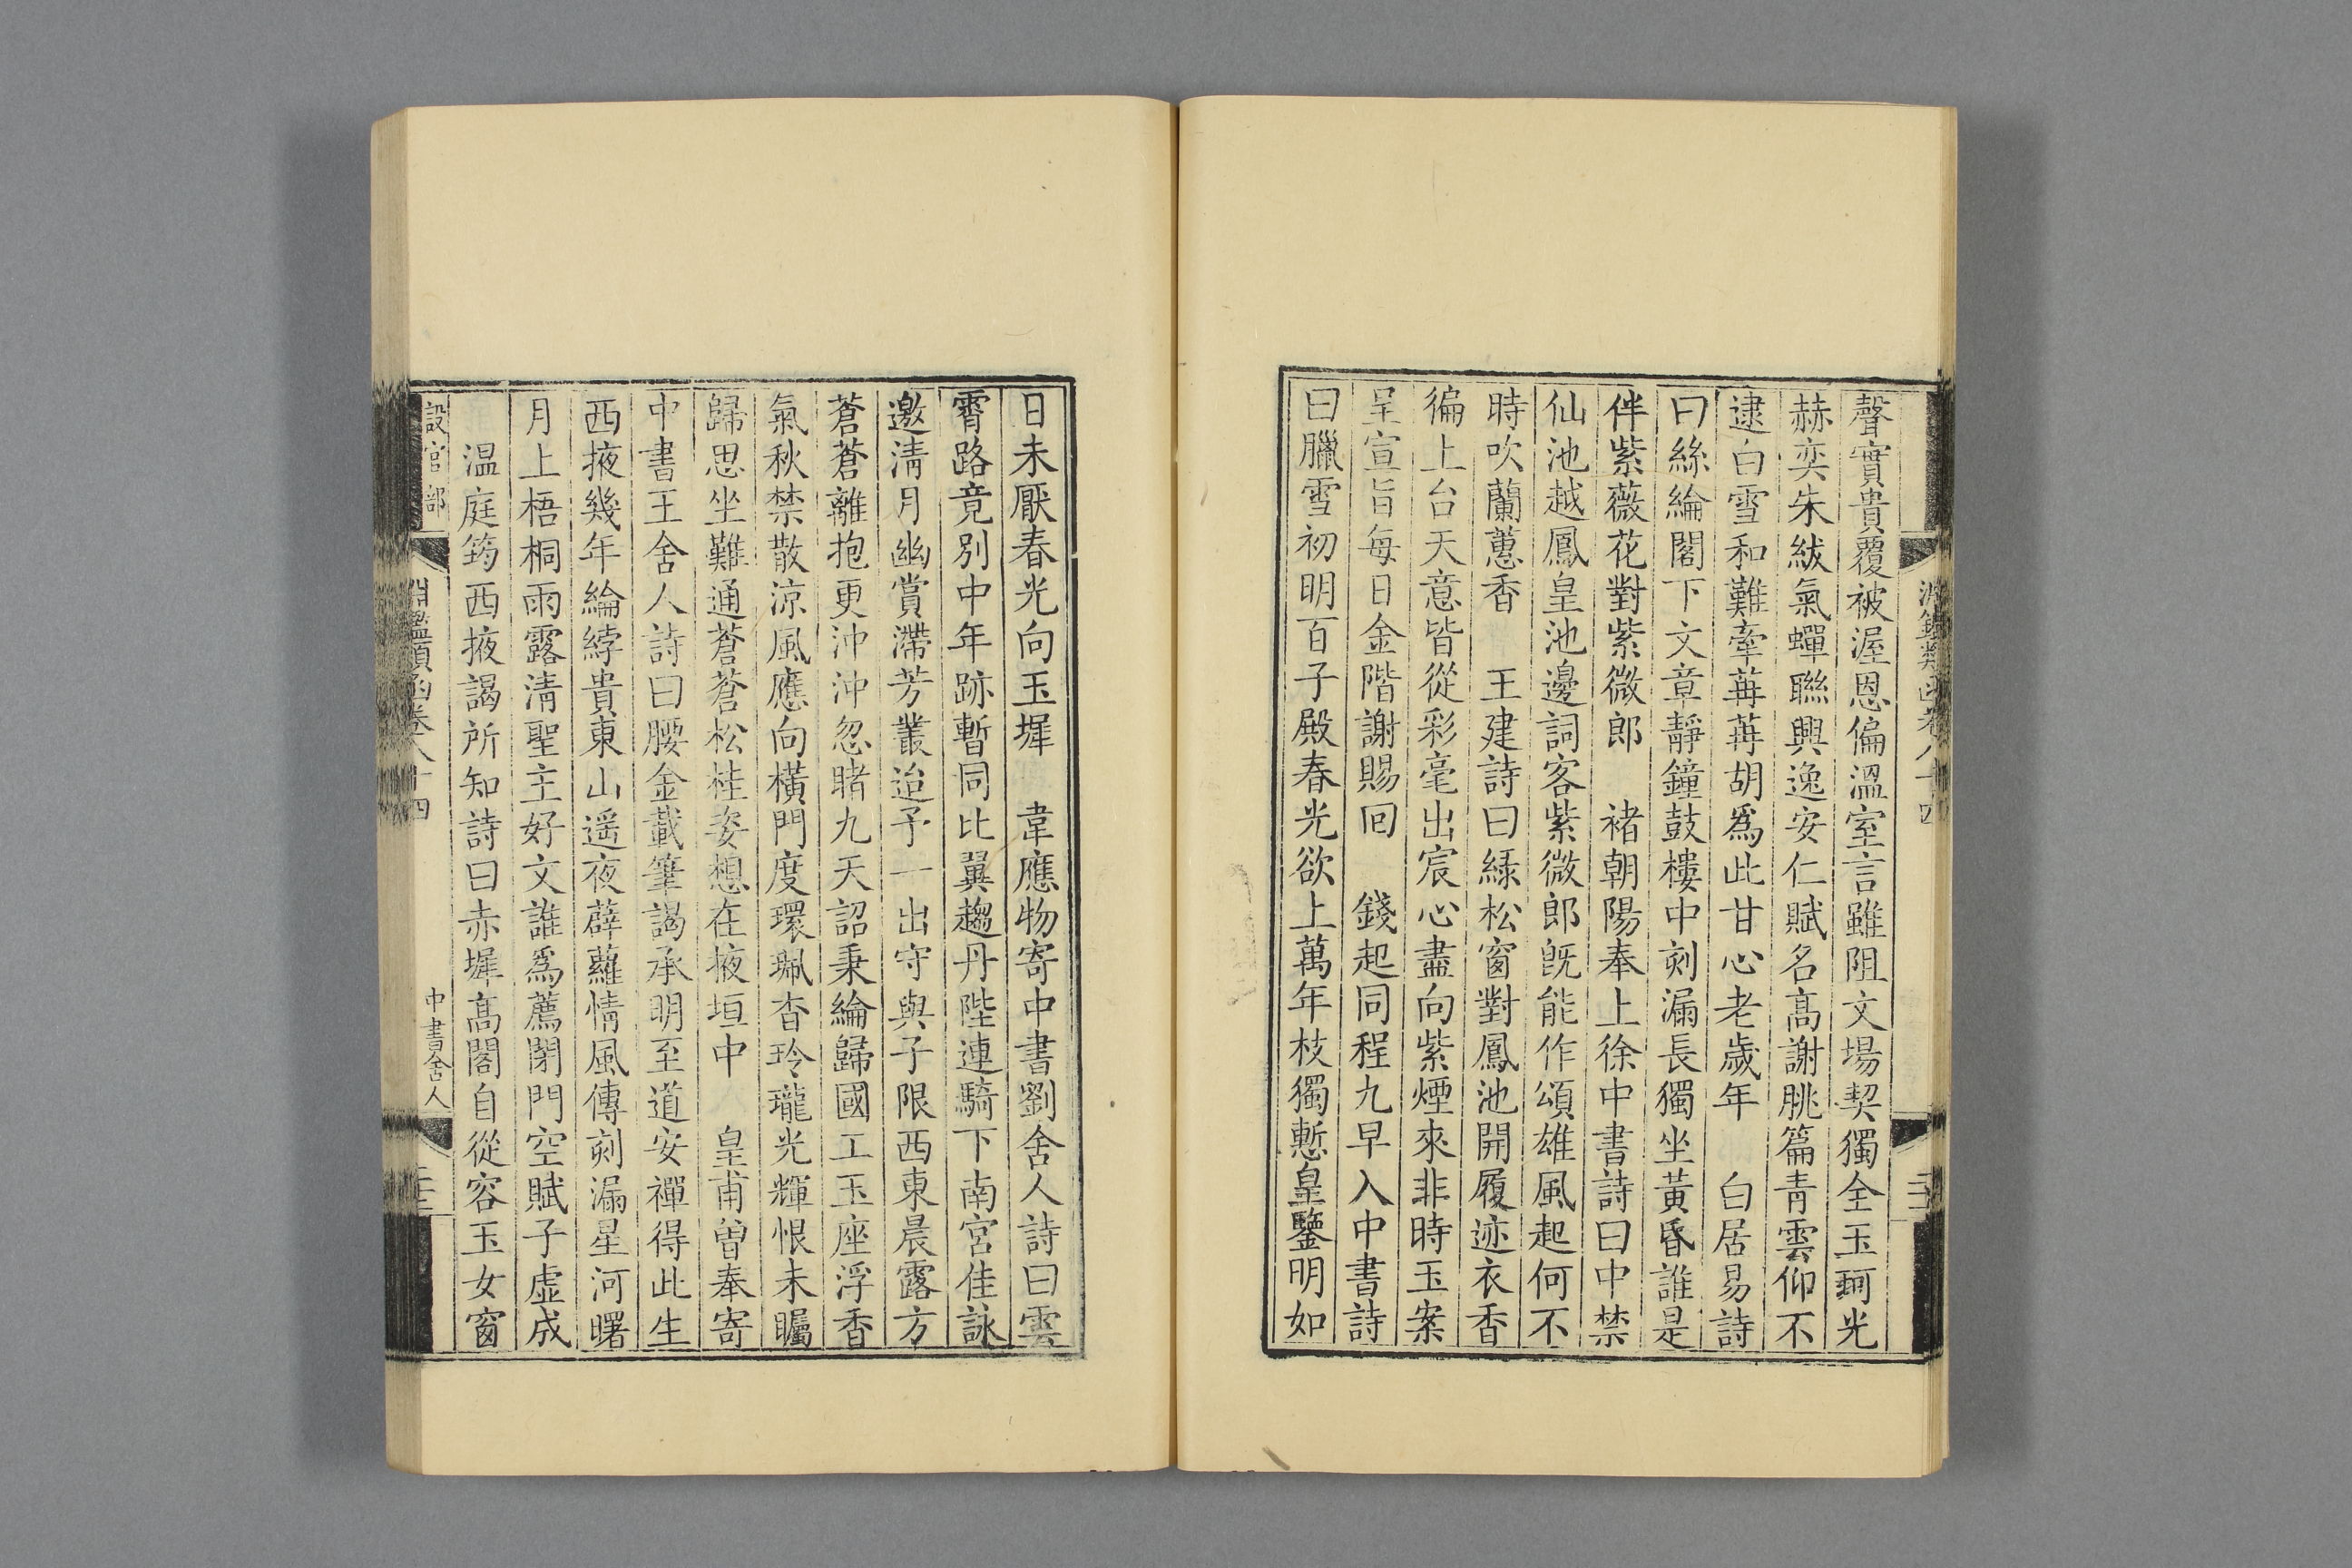 聲實貴覆被渥恩偏溫室言雖阻文場契獨全玉珂光
赫奕朱紱氣蟬聯興逸安仁賦名髙謝朓篇青雲仰不
逮白雪和難牽苒苒胡爲此甘心老歲年　白居易詩
曰絲綸閣下文章靜鐘鼓樓中刻漏長獨坐黃昏誰是
伴紫薇花對紫微郎　褚朝陽奉上徐中書詩曰中禁
仙池越鳳皇池邊詞客紫微郎旣能作頌雄風起何不
時吹蘭蕙香　王建詩曰緑松窗對鳳池開履迹衣香
徧上台天意皆從彩毫出宸心盡向紫煙來非時玉案
呈宣旨每日金階謝賜囘　錢起同程九早入中書詩
曰臘雪初明百子殿春光欲上萬年枝獨慙皇鑒明如
日未厭春光向玉墀　韋應物寄中書劉舍人詩曰雲
霄路竟別中年跡暫同比翼趨丹陛連騎下南宮佳詠
邀淸月幽賞滯芳叢迨予一出守與子限西東晨露方
蒼蒼離抱更沖沖忽睹九天詔秉綸歸國工玉座浮香
氣秋禁散涼風應向橫門度環珮杳玲瓏光輝恨未矚
歸思坐難通蒼蒼松桂姿想在掖垣中　皇甫曾奉寄
中書王舍人詩曰腰金載筆謁承明至道安禪得此生
西掖幾年綸綍貴東山遥夜薜蘿情風傳刻漏星河曙
月上梧桐雨露淸聖主好文誰爲薦閉門空賦子虛成
溫庭筠西掖謁所知詩曰赤墀髙閣自從容玉女窗
設官部
淵鑑類函卷八十四
中書舍人